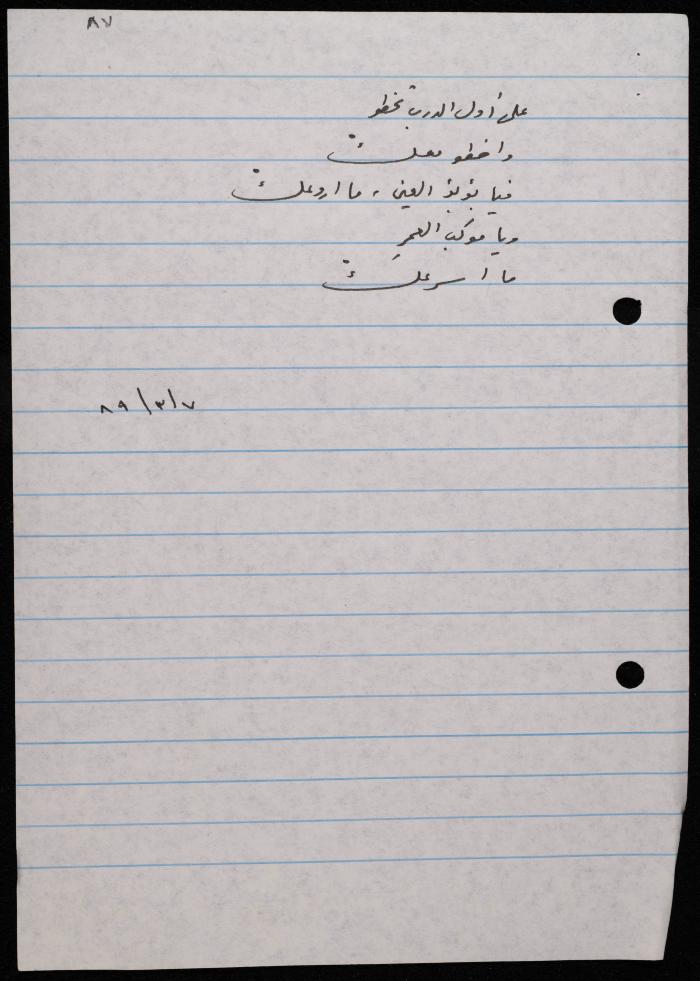 ٨٧
على أول الدرب تخطو
واخطو معكْ
فيا بؤبؤ العين ، ما اروعكْ
ويا موكب العمرِ
ما اسرعكْ
٨٩/٣/٧